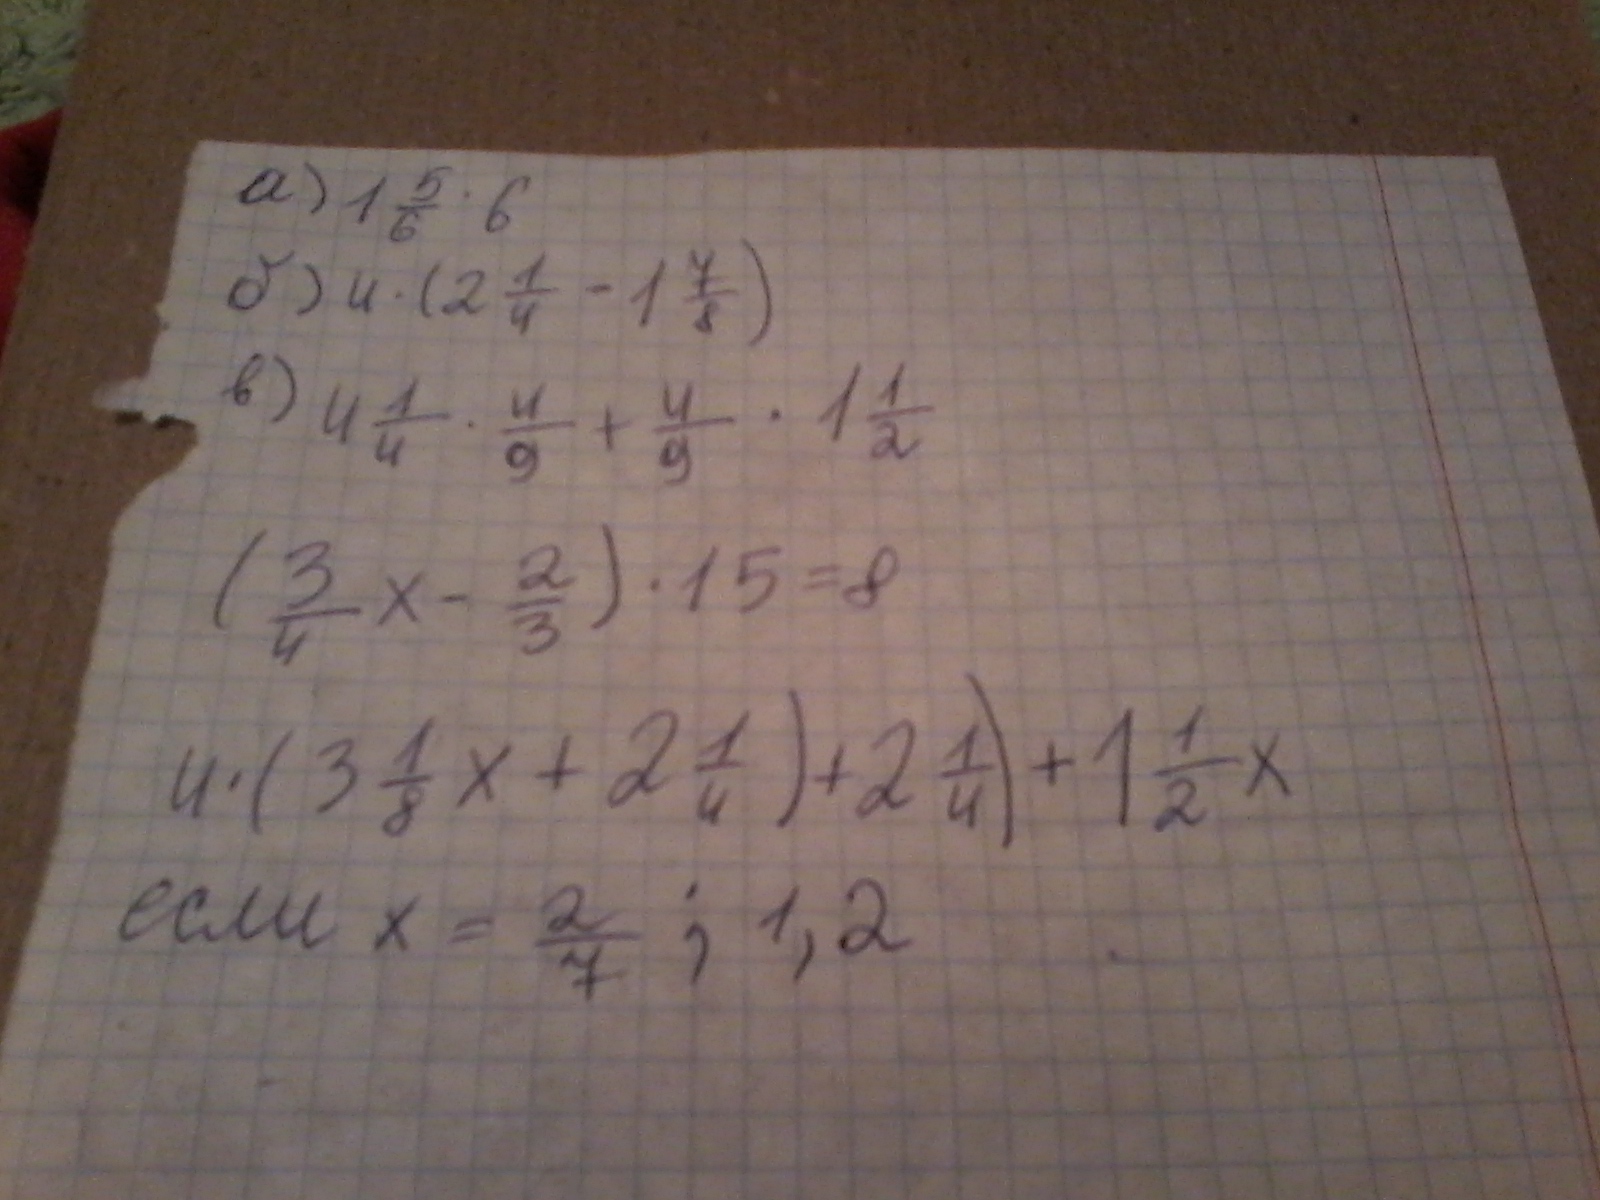 а) 1 5/6 · 6
б) 4 · (2 1/4 - 1 7/8)
в) 4 1/4 · 4/9 + 4/9 · 1 1/2
(3/4 x - 2/3) · 15 = 8
4 · (3 1/8 x + 2 1/4) + 2 1/4) + 1 1/2 x
если x = 2/7 ; 1,2